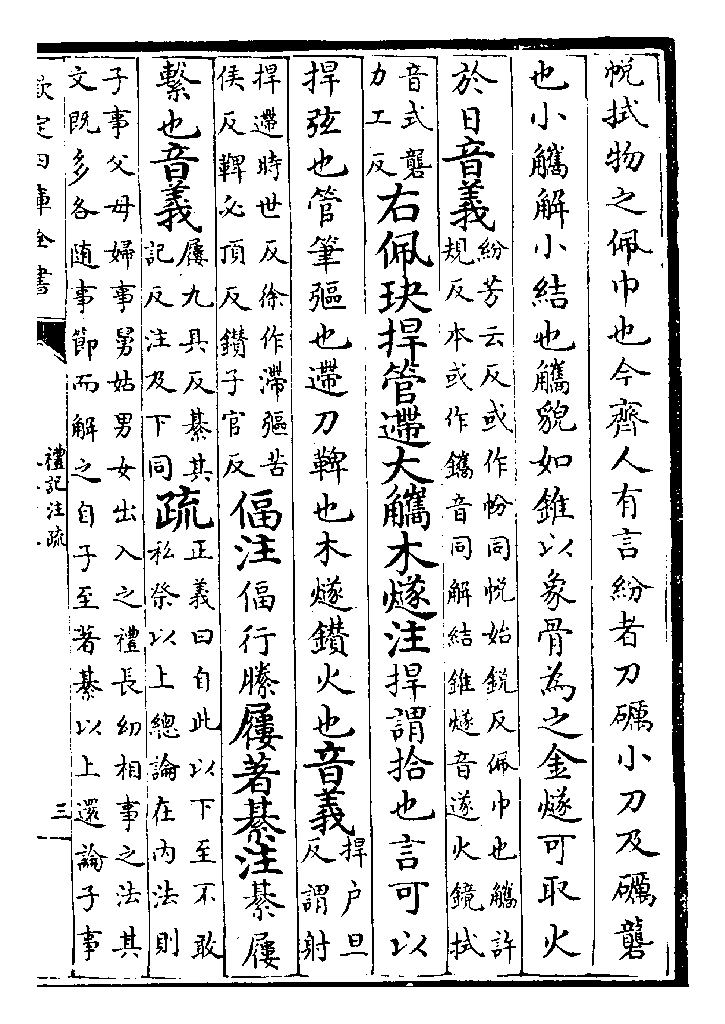 帨拭物之佩巾也今齊人有言紛者刀礪小刀及礪礱
也小觿解小結也觿貌如錐以象骨為之金燧可取火
於日音義
紛芳云反或作帉同帨始鋭反佩巾也觿許
規反本或作鑴音同解結錐燧音遂火鏡拭
音式礱
力工反
右佩玦捍管遰大觿木燧注捍謂拾也言可以
捍弦也管筆彄也遰刀鞞也木燧鑽火也音義
捍户旦
反謂射
捍遰時世反徐作滯彄苦
侯反鞞必頂反鑽子官反
偪注偪行縢屨著綦注綦屨
繫也音義
屨九具反綦其
記反注及下同
疏
正義曰自此以下至不敢
私祭以上總論在内法則
子事父母婦事舅姑男女出入之禮長幼相事之法其
文既多各随事節而解之自子至著綦以上還論子事
欽定四庫全書
禮記注疏
三